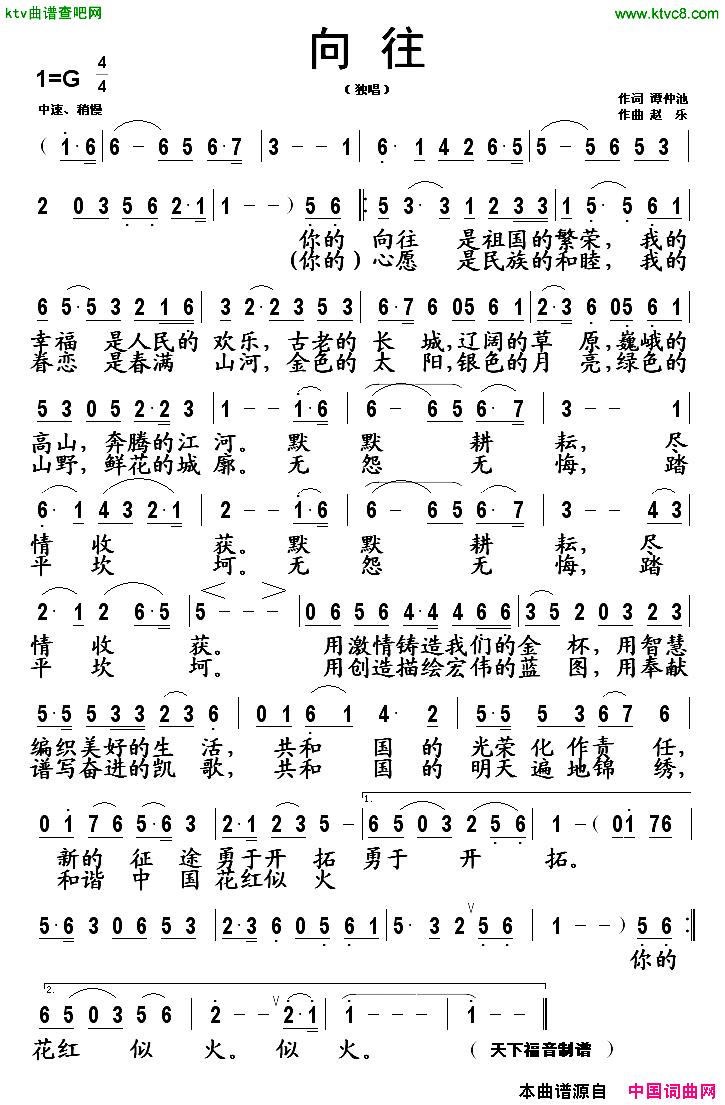 ktv曲谱查吧网
www.ktvc8.com
向 往
（独唱）
1=G 4/4
中速、稍慢
作词 谭仲池
作曲 赵 乐
( 1·6 | 6 - 6 5 6·7 | 3 - - 1 | 6· 1 4 2 6·5 | 5 - 5 6 5 3 |
2 0 3 5 6 2·1 | 1 - - ) 5 6 |: 5 3· 3 1 2 3 3 | 1 5· 5 6 1 |
你的 向往 是祖国的繁荣，我的
（你的）心愿 是民族的和睦，我的
6 5·5 3 2 1 1·6 | 3 2·2 5 3 | 6·7 6 05 6 1 | 2·3 6 05 6 1 |
幸福 是人民的 欢乐，古老的 长 城,辽阔的草 原,巍峨的
眷恋 是春满 山河，金色的 太 阳,银色的月 亮,绿色的
5 3 0 5 2·2 3 | 1 - - 1·6 | 6 - 6 5 6·7 | 3 - - 1 |
高山，奔腾的江 河。默 默 耕 耘，尽
山野，鲜花的城 廓。无 怨 无 悔，踏
6· 1 4 3 2·1 | 2 - - 1·6 | 6 - 6 5 6·7 | 3 - - 4 3 |
情 收 获。默 默 耕 耘，尽
平 坎 坷。无 怨 无 悔，踏
2· 1 2 6·5 | 5 - - - | 0 6 5 6 4·4 4 6 6 6 | 3 5 2 0 3 2 3 |
情 收 获。 用激情铸造我们的金 杯，用智慧
平 坎 坷。 用创造描绘宏伟的蓝 图，用奉献
5·5 5 3 3 2 3 6 | 0 1 6 1 4· 2 | 5·5 5 3 6 7 6 |
编织美好的生 活， 共和 国 的 光荣化作责 任，
谱写奋进的凯 歌， 共和 国 的 明天遍地锦 绣，
0 1 7 6 5·6 3 | 2·1 2 3 5 - | 1. 6 5 0 3 2 5 6 | 1 - ( 01 76 |
新的 征 途 勇于开 拓 勇于 开 拓。
和谐 中 国 花红似 火
5·5 6 3 0 6 5 3 | 2·3 6 0 5 6 1 | 5· 3 2 ∨ 5 6 | 1 - - ) 5 6 :|
你的
2. 6 5 0 3 5 6 | 2 - - ∨ 2·1 | 1 - - - | 1 - - ‖
花红 似 火。似 火。 （ 天下福音制谱 ）
本曲谱源自 中国词曲网